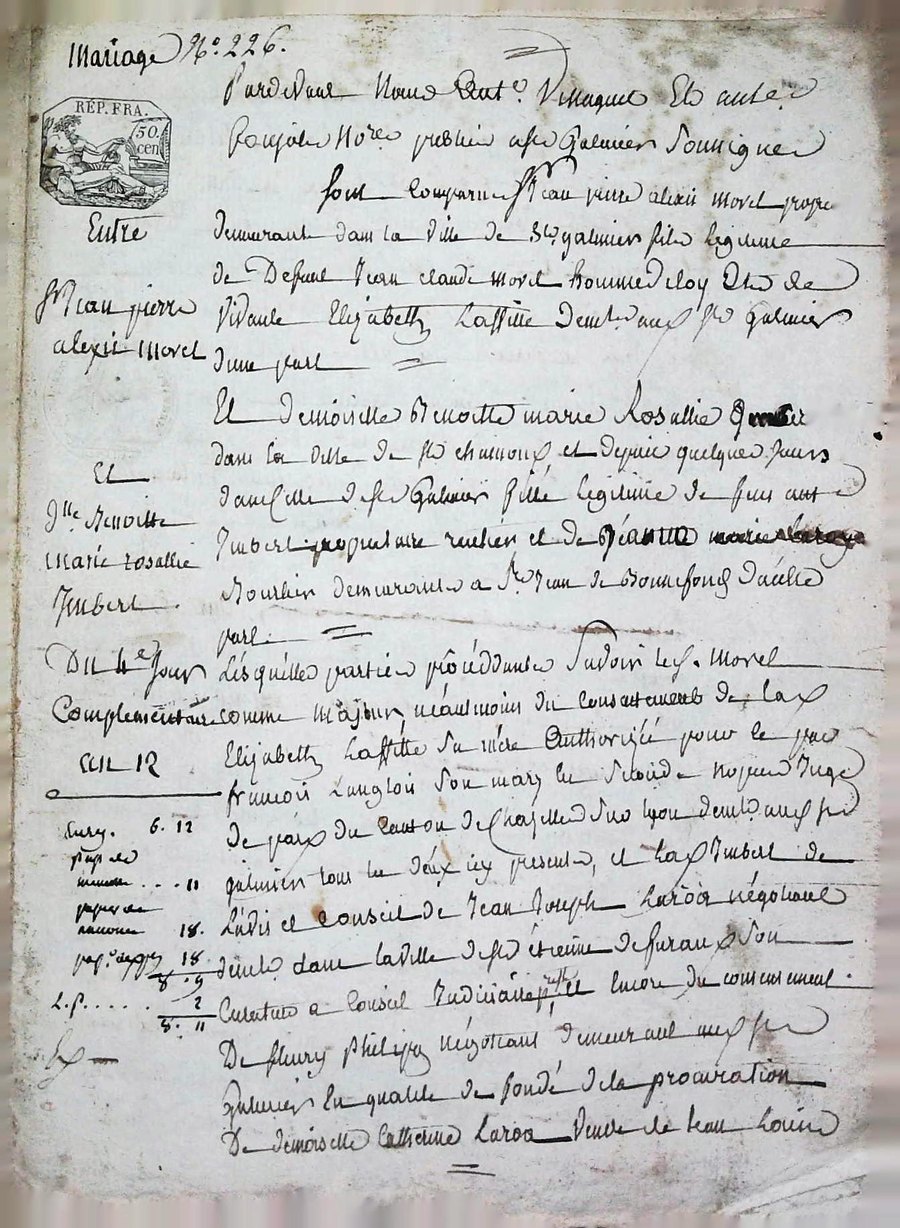 Mariage N.o 226.
Pardevant Nous Ant.e Villaquet Et autre
publics Galmier Soussignes
REP. FRA.
50. cen
Sont Comparus Sr Jean pierre alexis morel propre
Entre
demeurant dans la Ville de St galmier fils legitime
de Defunt Jean claude morel homme de loy Et de
Sr Jean pierre
Vivante Elizabeth Laffitte Demt. aud. St Galmier
alexis morel
d'une part
Et demoiselle Benoitte marie Rosallie
dans la Ville de St chamond et depuis quelques Jours
Et
dans celle de St Galmier fille legitime de feu
Dlle Benoitte
Imbert propriétaire rentier et de marie
marie rosallie
Bourbier demeurante a St Jean de Bonnefonds D'autre
Imbert
part.
Du 4e Jour
Lesquelles parties procédantes Savoir led. Sr. Morel
Complementaire
comme Majeur, néantmoins du Consentement de lad.
an 12
Elizabeth Laffitte Sa mère Authorizée pour ce par
françois Langlois Son mary en Seconde nopces Juge
Enrg. 6. 12
de paix du Canton de Chazelles Sur Lyon demt. aud. St
papier de
minute . . . . 11
galmier tous les deux icy presents, et lad. Imbert de
papier de
annonce 18.
L'avis et Conseil de Jean Joseph Laroa négotiant
18
8. 9
demt. dans la Ville de St étienne de furan Son
L.p. . . . . . 2
8. 11
Curateur a Conseil Judiciaire Et Encore du consentement
De fleury Philip négotiant demeurant aud. St
Galmier En qualité de fondé de la procuration
De demoiselle Catherine Laroa Veuve de Jean Louis